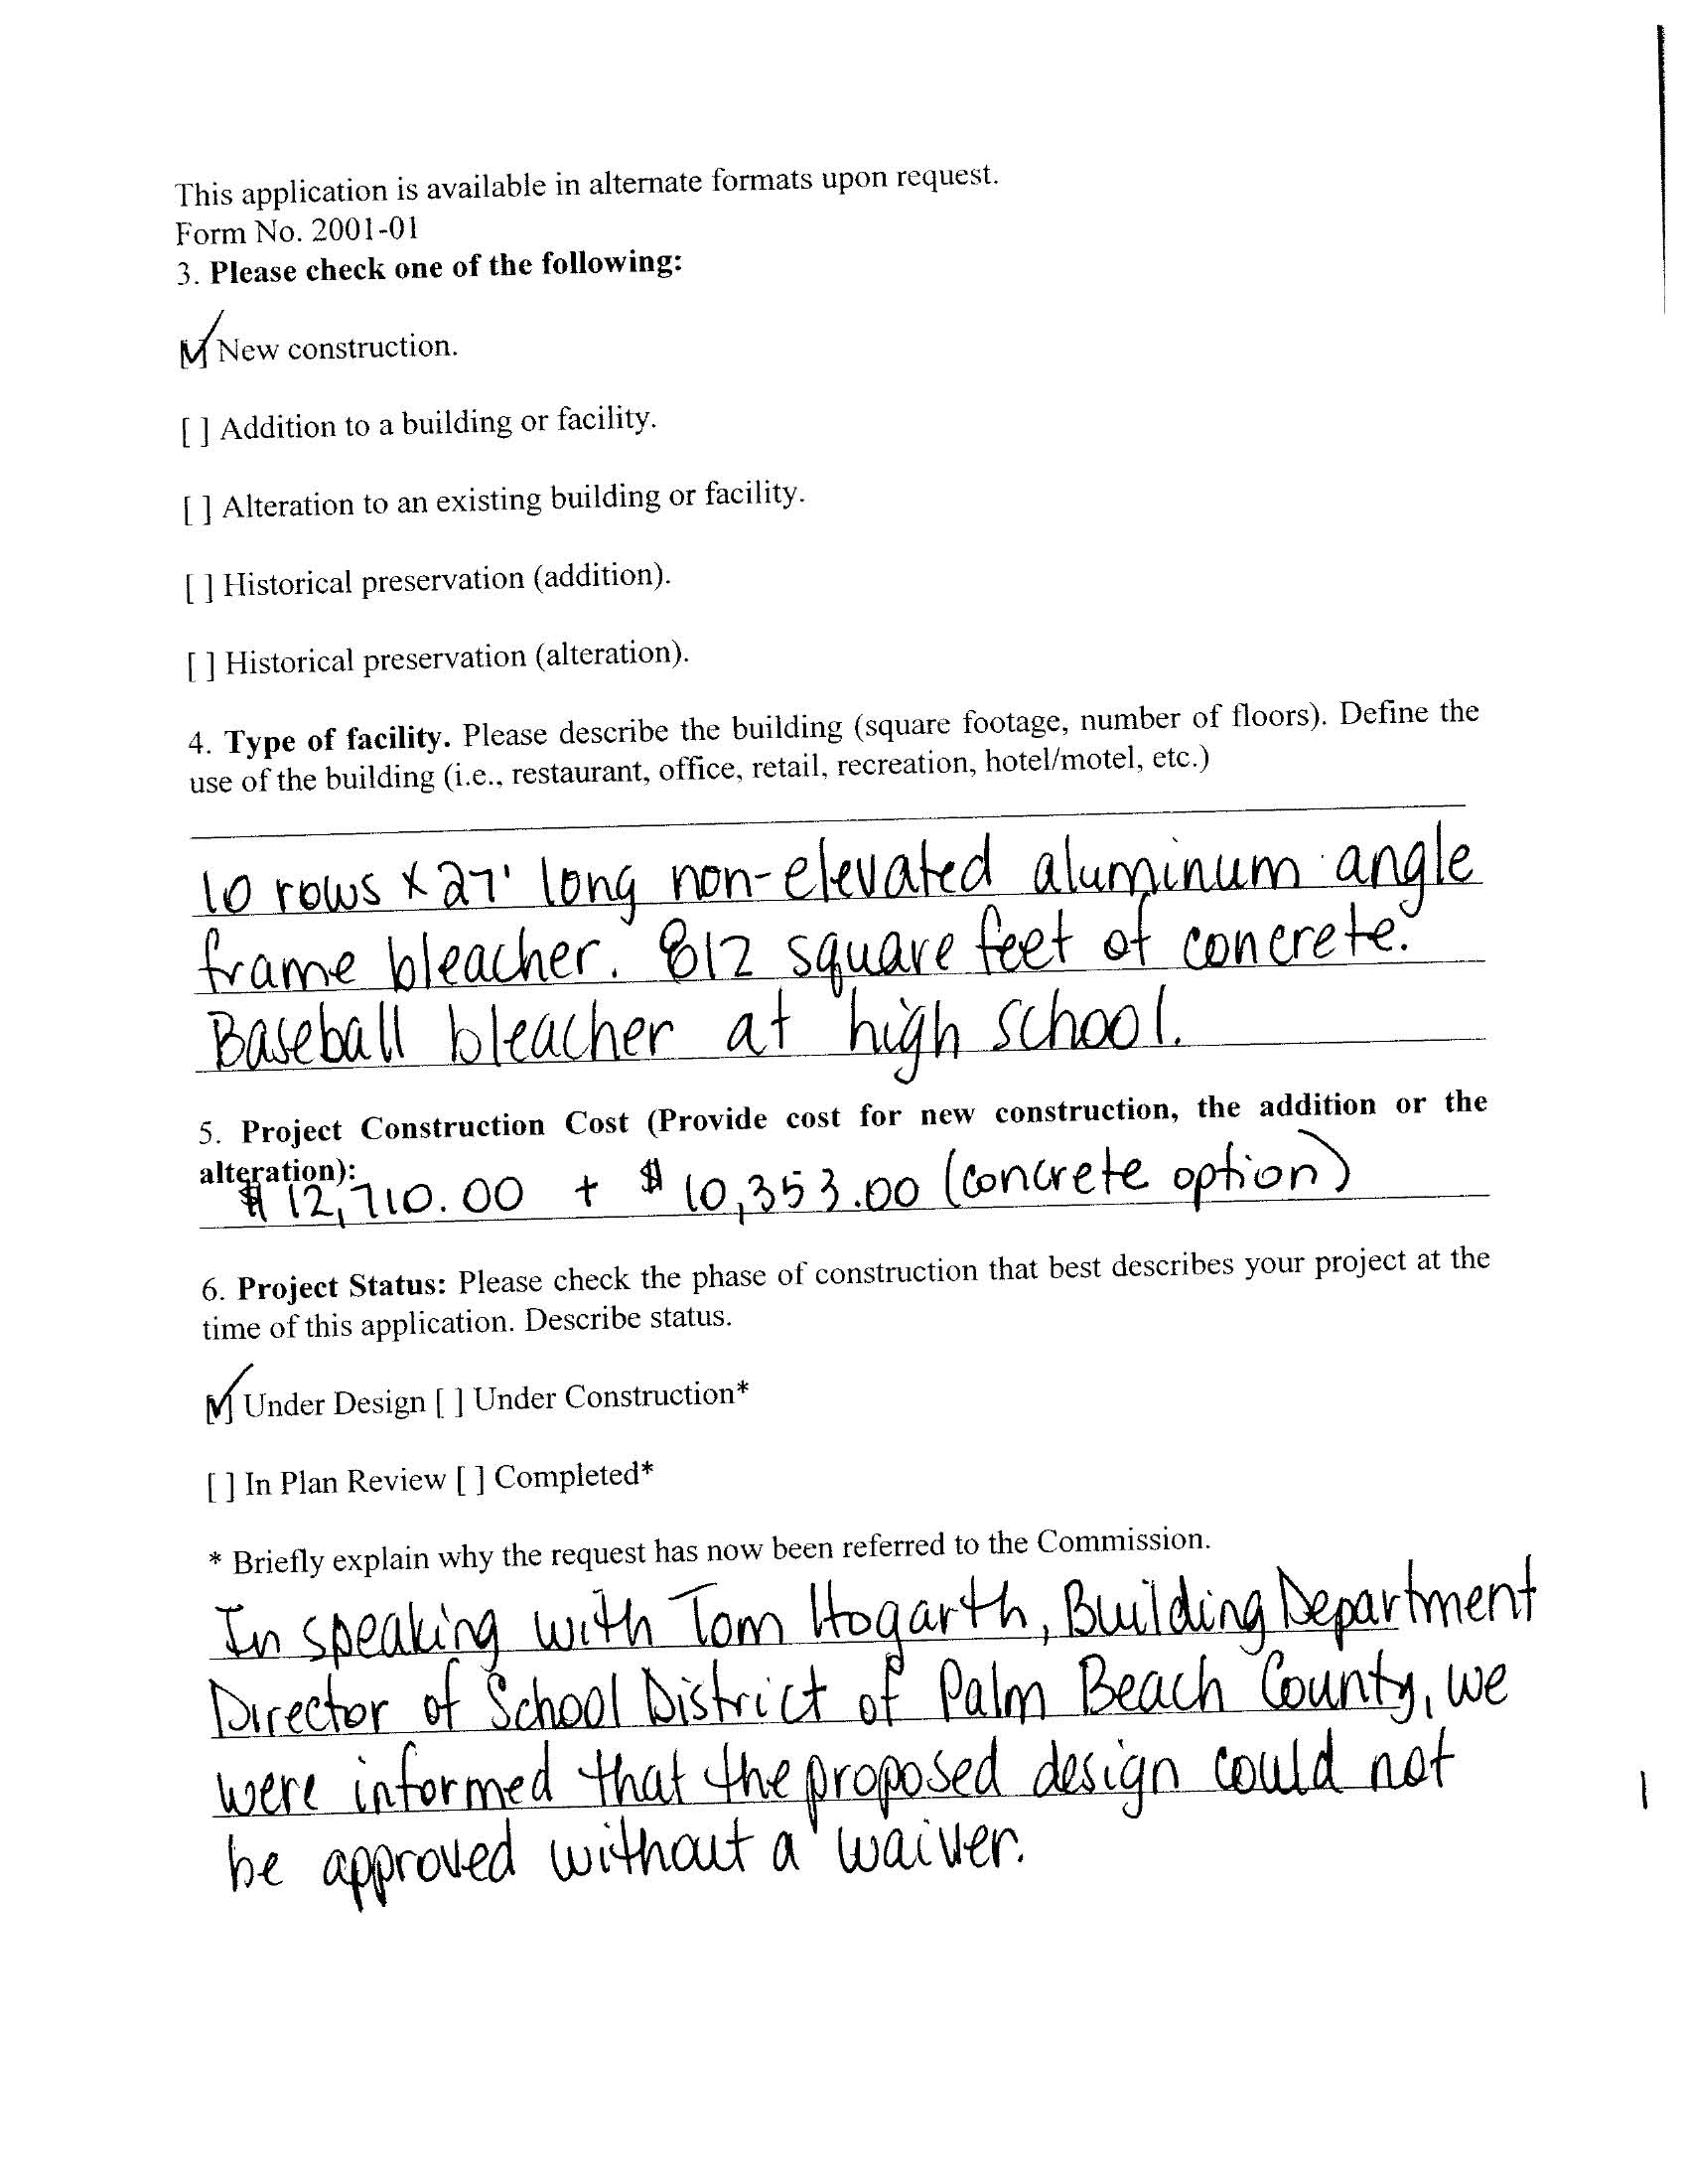 This application is available in alternate formats upon request.
Form No. 2001-01
3. Please check one of the following:
[✓] New construction.
[ ] Addition to a building or facility.
[ ] Alteration to an existing building or facility.
[ ] Historical preservation (addition).
[ ] Historical preservation (alteration).
4. Type of facility. Please describe the building (square footage, number of floors). Define the
use of the building (i.e., restaurant, office, retail, recreation, hotel/motel, etc.)
10 rows x 27' long non-elevated aluminum angle
frame bleacher. 812 square feet of concrete.
Baseball bleacher at high school.
5. Project Construction Cost (Provide cost for new construction, the addition or the
alteration):
$12,710.00 + $10,353.00 (concrete option)
6. Project Status: Please check the phase of construction that best describes your project at the
time of this application. Describe status.
[✓] Under Design [ ] Under Construction*
[ ] In Plan Review [ ] Completed*
* Briefly explain why the request has now been referred to the Commission.
In speaking with Tom Hogarth, Building Department
Director of School District of Palm Beach County, we
were informed that the proposed design could not
be approved without a waiver.